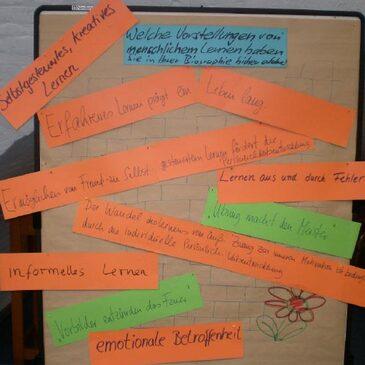 Welche Vorstellungen von
menschlichem Lernen haben
Sie in Ihrer Biographie bisher erlebt?
Selbstgesteuertes, kreatives
Lernen
Erfahrenes Lernen prägt ein
Leben lang
Ermöglichen von Fremd- zu Selbst gesteuerten Lernen fördert die
Persönlichkeitsentwicklung
Lernen aus und durch Fehler
"Übung macht den Meister"
Der Wandel des Lernens von Auß. Zwang zur inneren Motivation ist bedingt
durch die individuelle Persönlich.
Informelles Lernen
"Vorbilder entzünden das Feuer"
emotionale Betroffenheit